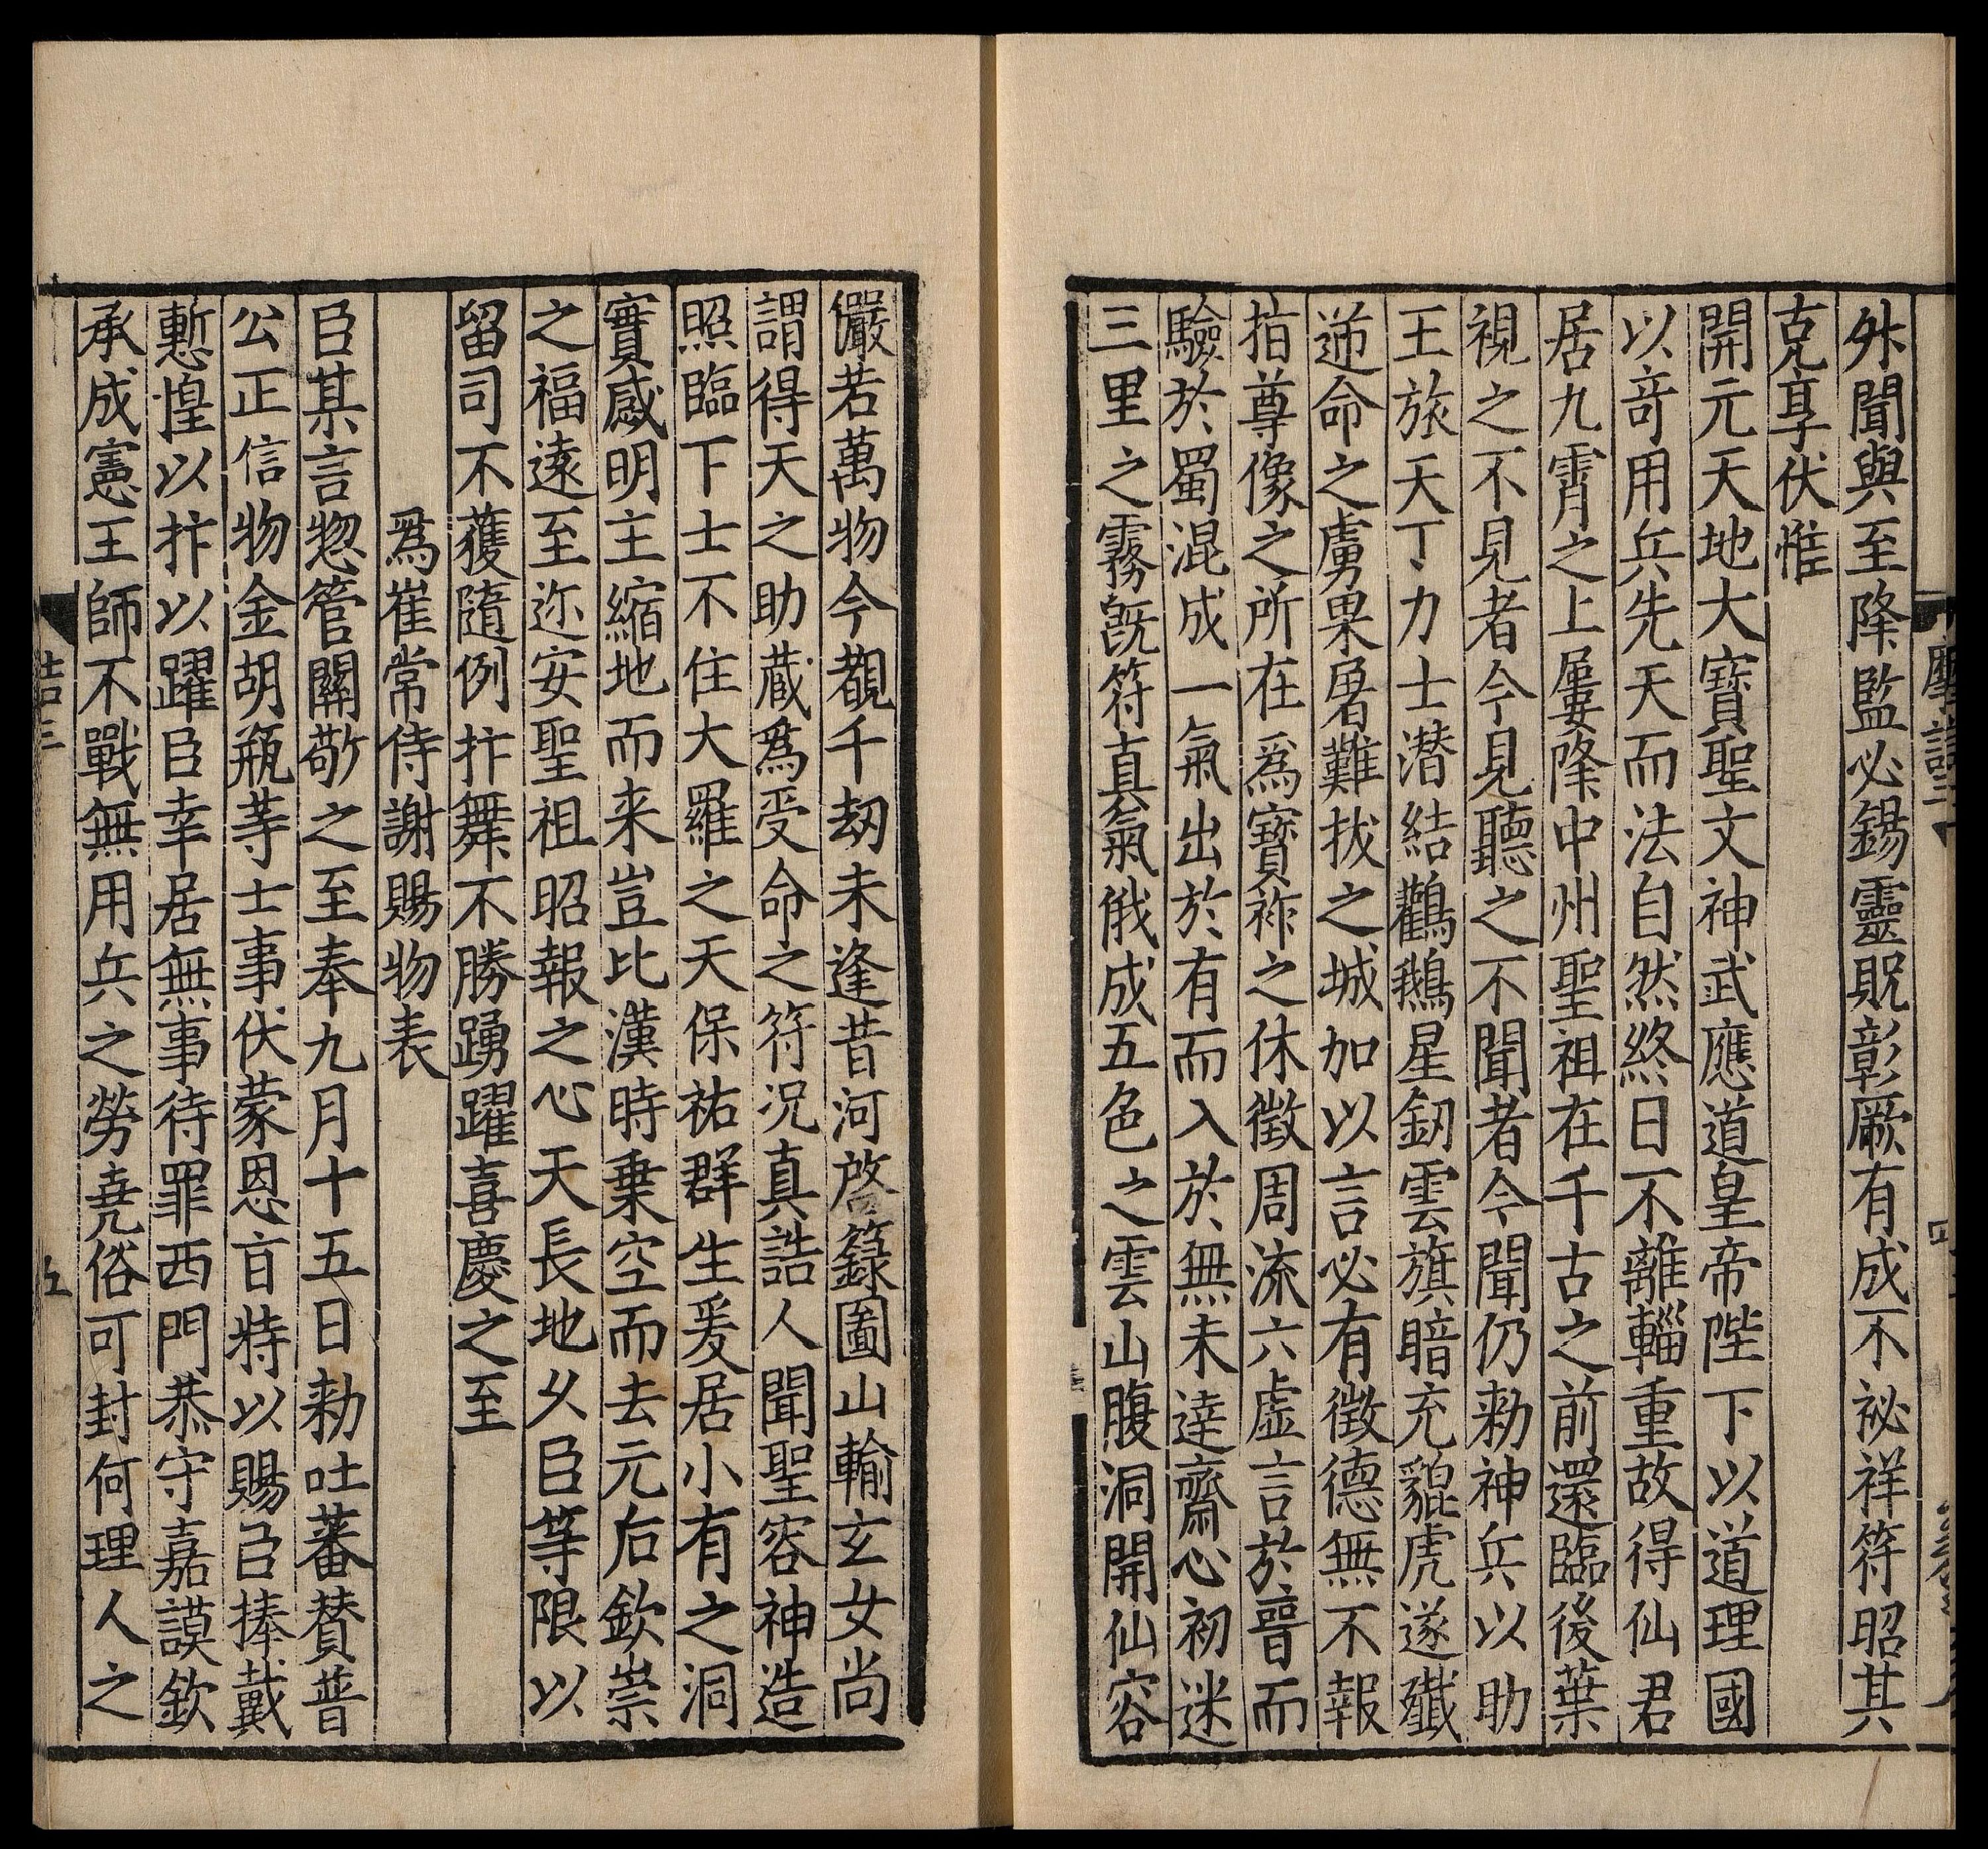 外聞與至降監必錫靈貺彰厥有成不祕祥符昭其
克享伏惟
開元天地大寶聖文神武應道皇帝陛下以道理國
以竒用兵先天而法自然終日不離輜重故得仙君
居九霄之上屢降中州聖祖在千古之前還臨後葉
視之不見者今見聽之不聞者今聞仍勑神兵以助
王旅天丁力士潜結鸛鵝星劒雲旗暗充貔虎遂殲
逆命之虜果屠難拔之城加以言必有徵德無不報
指尊像之所在爲寶祚之休徵周流六虚言於晉而
驗於蜀混成一氣出於有而入於無未達齋心初迷
三里之霧旣符真氣俄成五色之雲山腹洞開仙容
儼若萬物今覩千刼未逢昔河啓籙圖山輸玄女尚
謂得天之助蔵爲受命之符况真誥人聞聖容神造
照臨下士不住大羅之天保祐群生爰居小有之洞
實感明主縮地而来豈比漢時乗空而去元后欽崇
之福逺至迩安聖祖昭報之心天長地久臣等限以
留司不獲隨例抃舞不勝踴躍喜慶之至
爲崔常侍謝賜物表
臣某言惣管關敬之至奉九月十五日勑吐蕃贊普
公正信物金胡瓶等十事伏蒙恩㫖特以賜臣捧戴
慙惶以抃以躍臣幸居無事待罪西門恭守嘉謨欽
承成憲王師不戰無用兵之勞堯俗可封何理人之
吉三
五